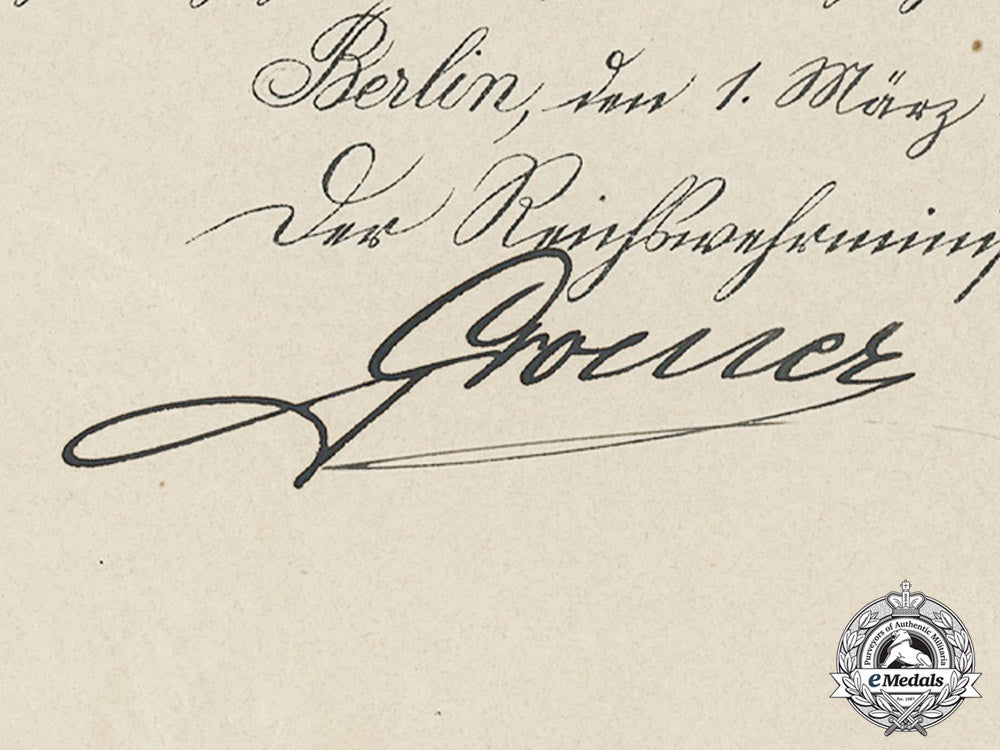 Berlin, den 1. März
Der Reichswehrminis
Groener
Purveyors of Authentic Militaria
eMedals
Est. 1985